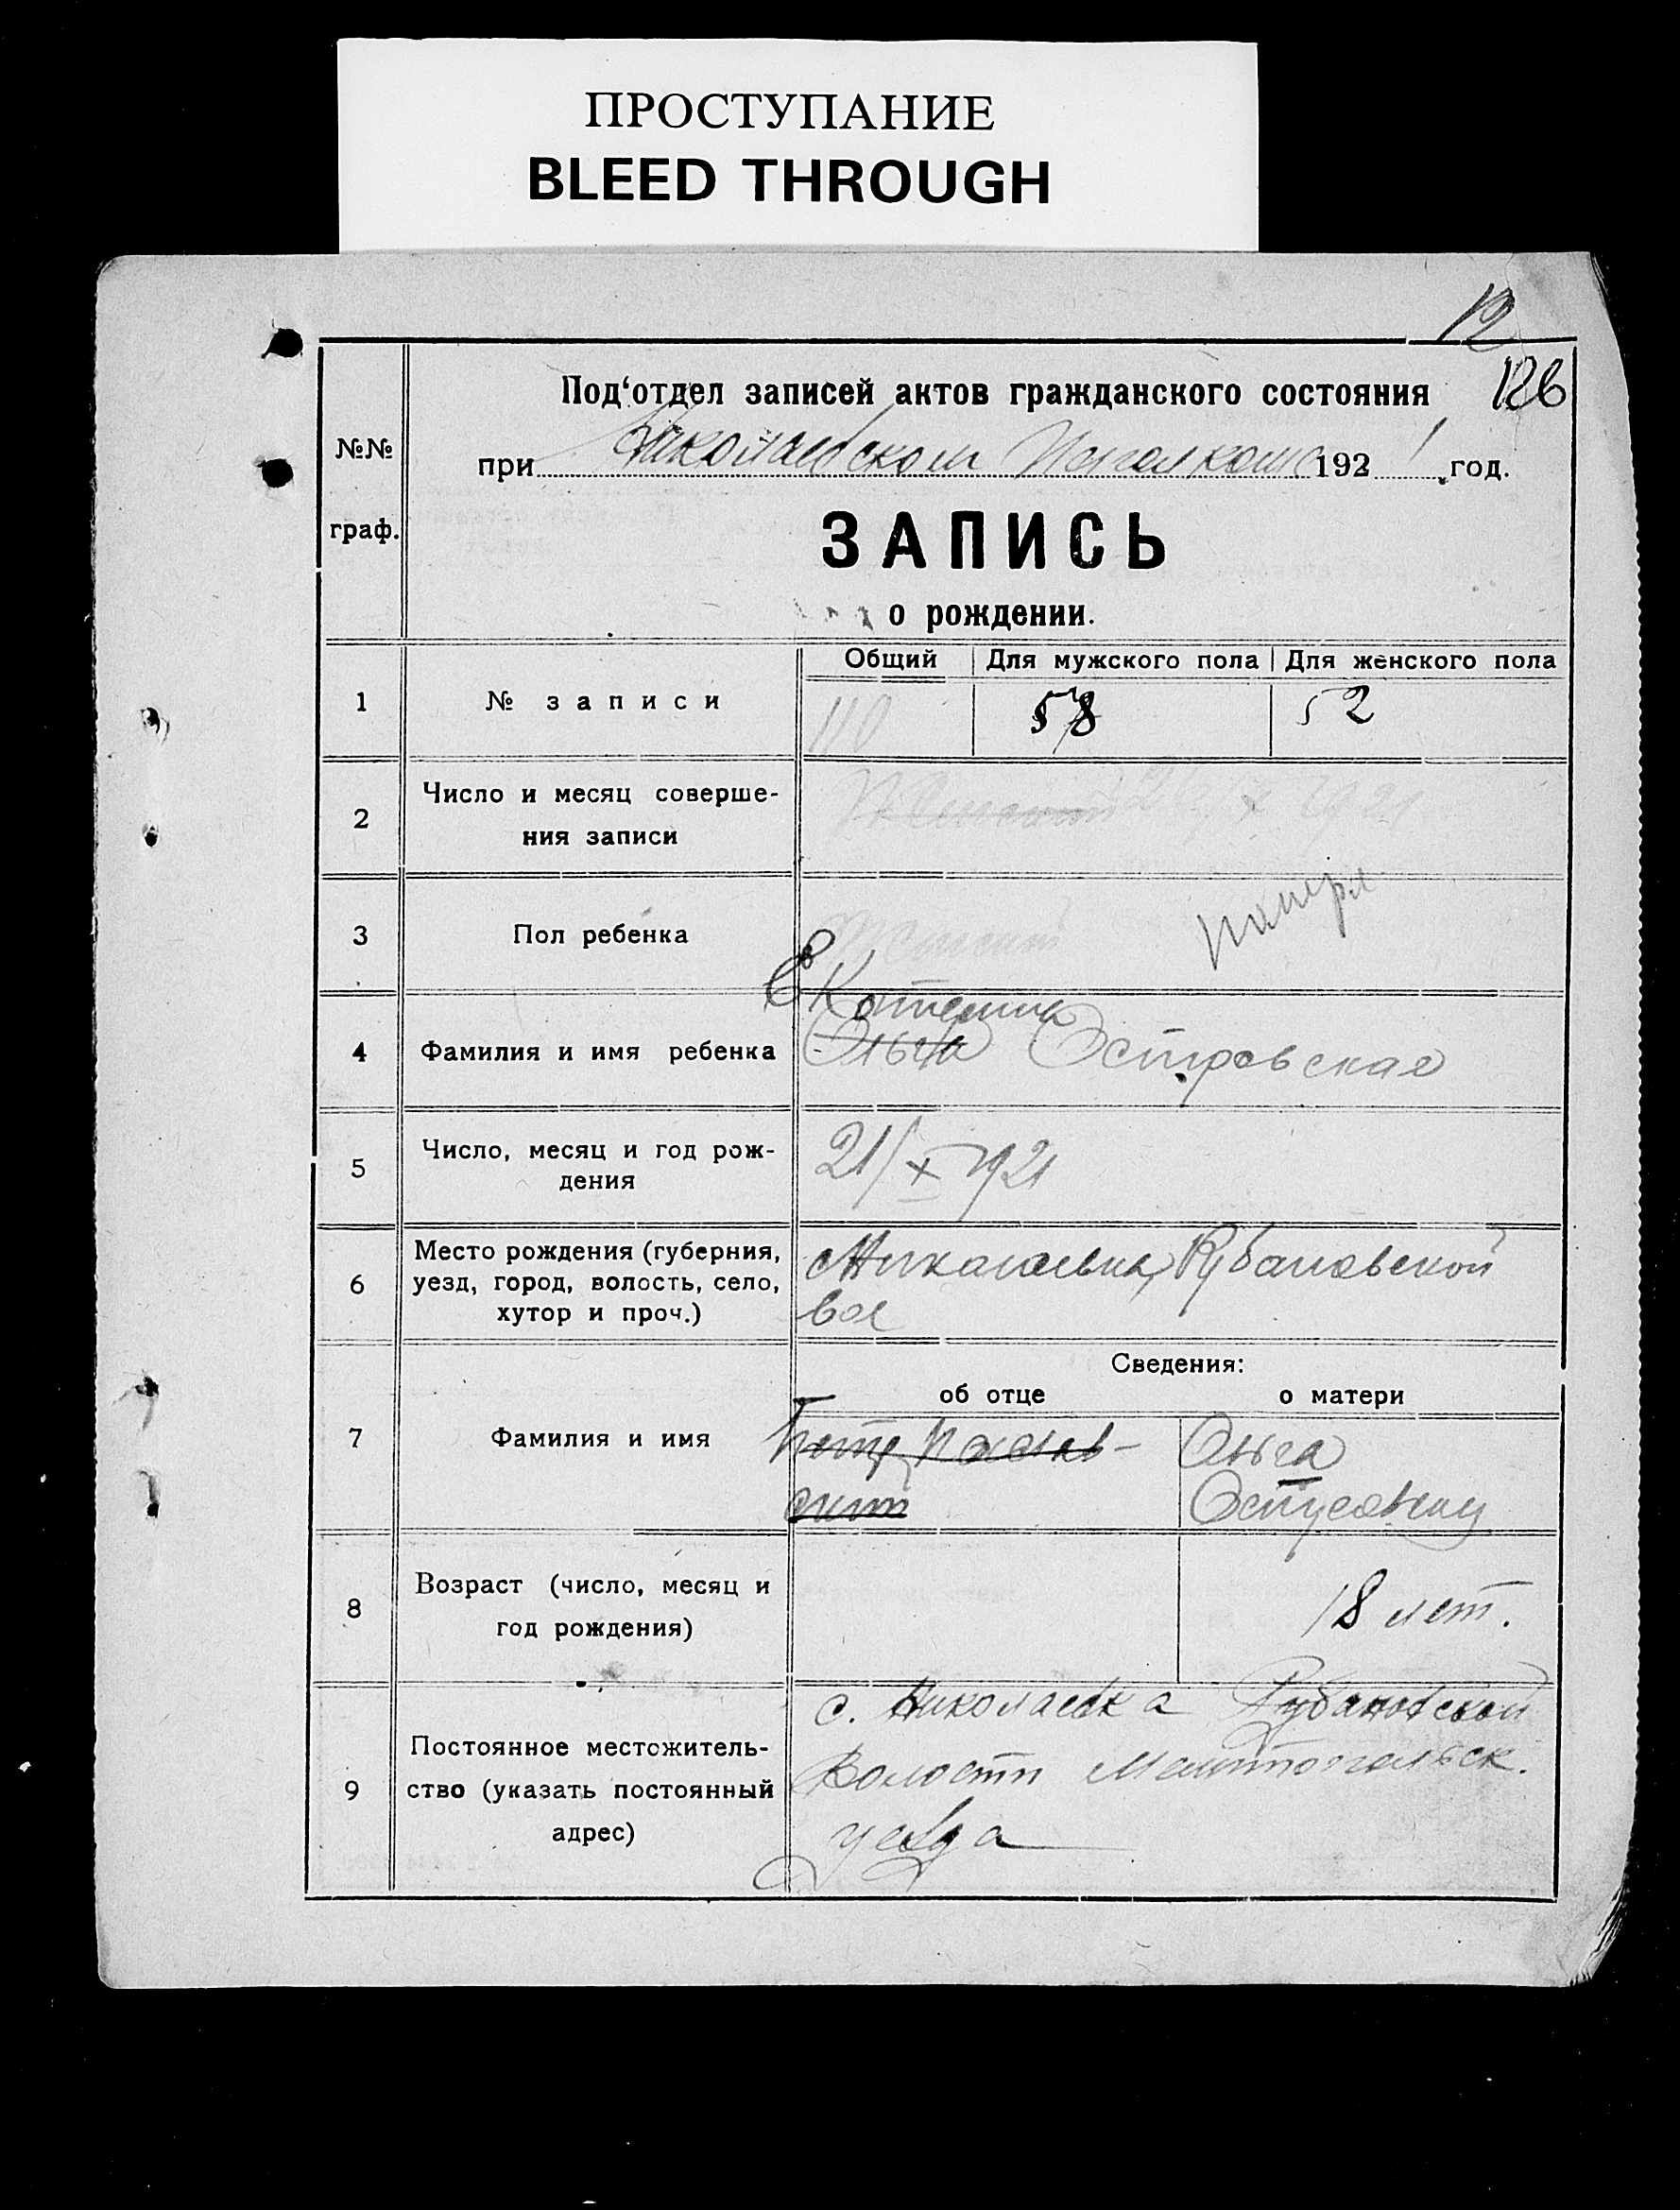 ПРОСТУПАНИЕ
BLEED THROUGH
12
126
№№
граф.
Под‘отдел записей актов гражданского состояния
при Николаевском 1921 год.
ЗАПИСЬ
о рождении.
Общий Для мужского пола Для женского пола
1 № записи 110 58 52
2 Число и месяц соверше-
ния записи X 1921
3 Пол ребенка
Екатерина
4 Фамилия и имя ребенка Ольга Островская
5 Число, месяц и год рож-
дения 21/X 1921
6 Место рождения (губерния,
уезд, город, волость, село,
хутор и проч.) Рубановской
вол
Сведения:
об отце о матери
7 Фамилия и имя Петр Ольга
8 Возраст (число, месяц и
год рождения) 18 лет.
9 Постоянное местожитель-
ство (указать постоянный
адрес) с. Николаевка Рубановской
волости Мелитопольск.
уезда